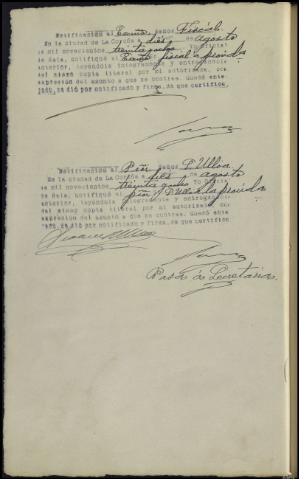 Notificación al Excmo. Señor Fiscal.
En la ciudad de La Coruña a diez de agosto
de mil novecientos treinta y ocho yo Oficial
de Sala, notifiqué al Excmo. fiscal la providencia
anterior, leyéndole íntegramente y entregándole
del mismo copia literal por mi autorizada, con
expresión del asunto a que se contrae. Quedó ente-
rado, se dió por notificado y firma, de que certifico
Notificación al Señor P. Ulloa
En la ciudad de La Coruña a diez de agosto
de mil novecientos treinta y ocho yo Oficial
de Sala, notifiqué al P. Ulloa la providencia
anterior, leyéndole íntegramente y entregándole
del mismo copia literal por mi autorizada con
expresión del asunto a que se contrae. Quedó ente-
rado, se dió por notificado y firma, de que certifico
Ulloa
Pasa a Secretaría